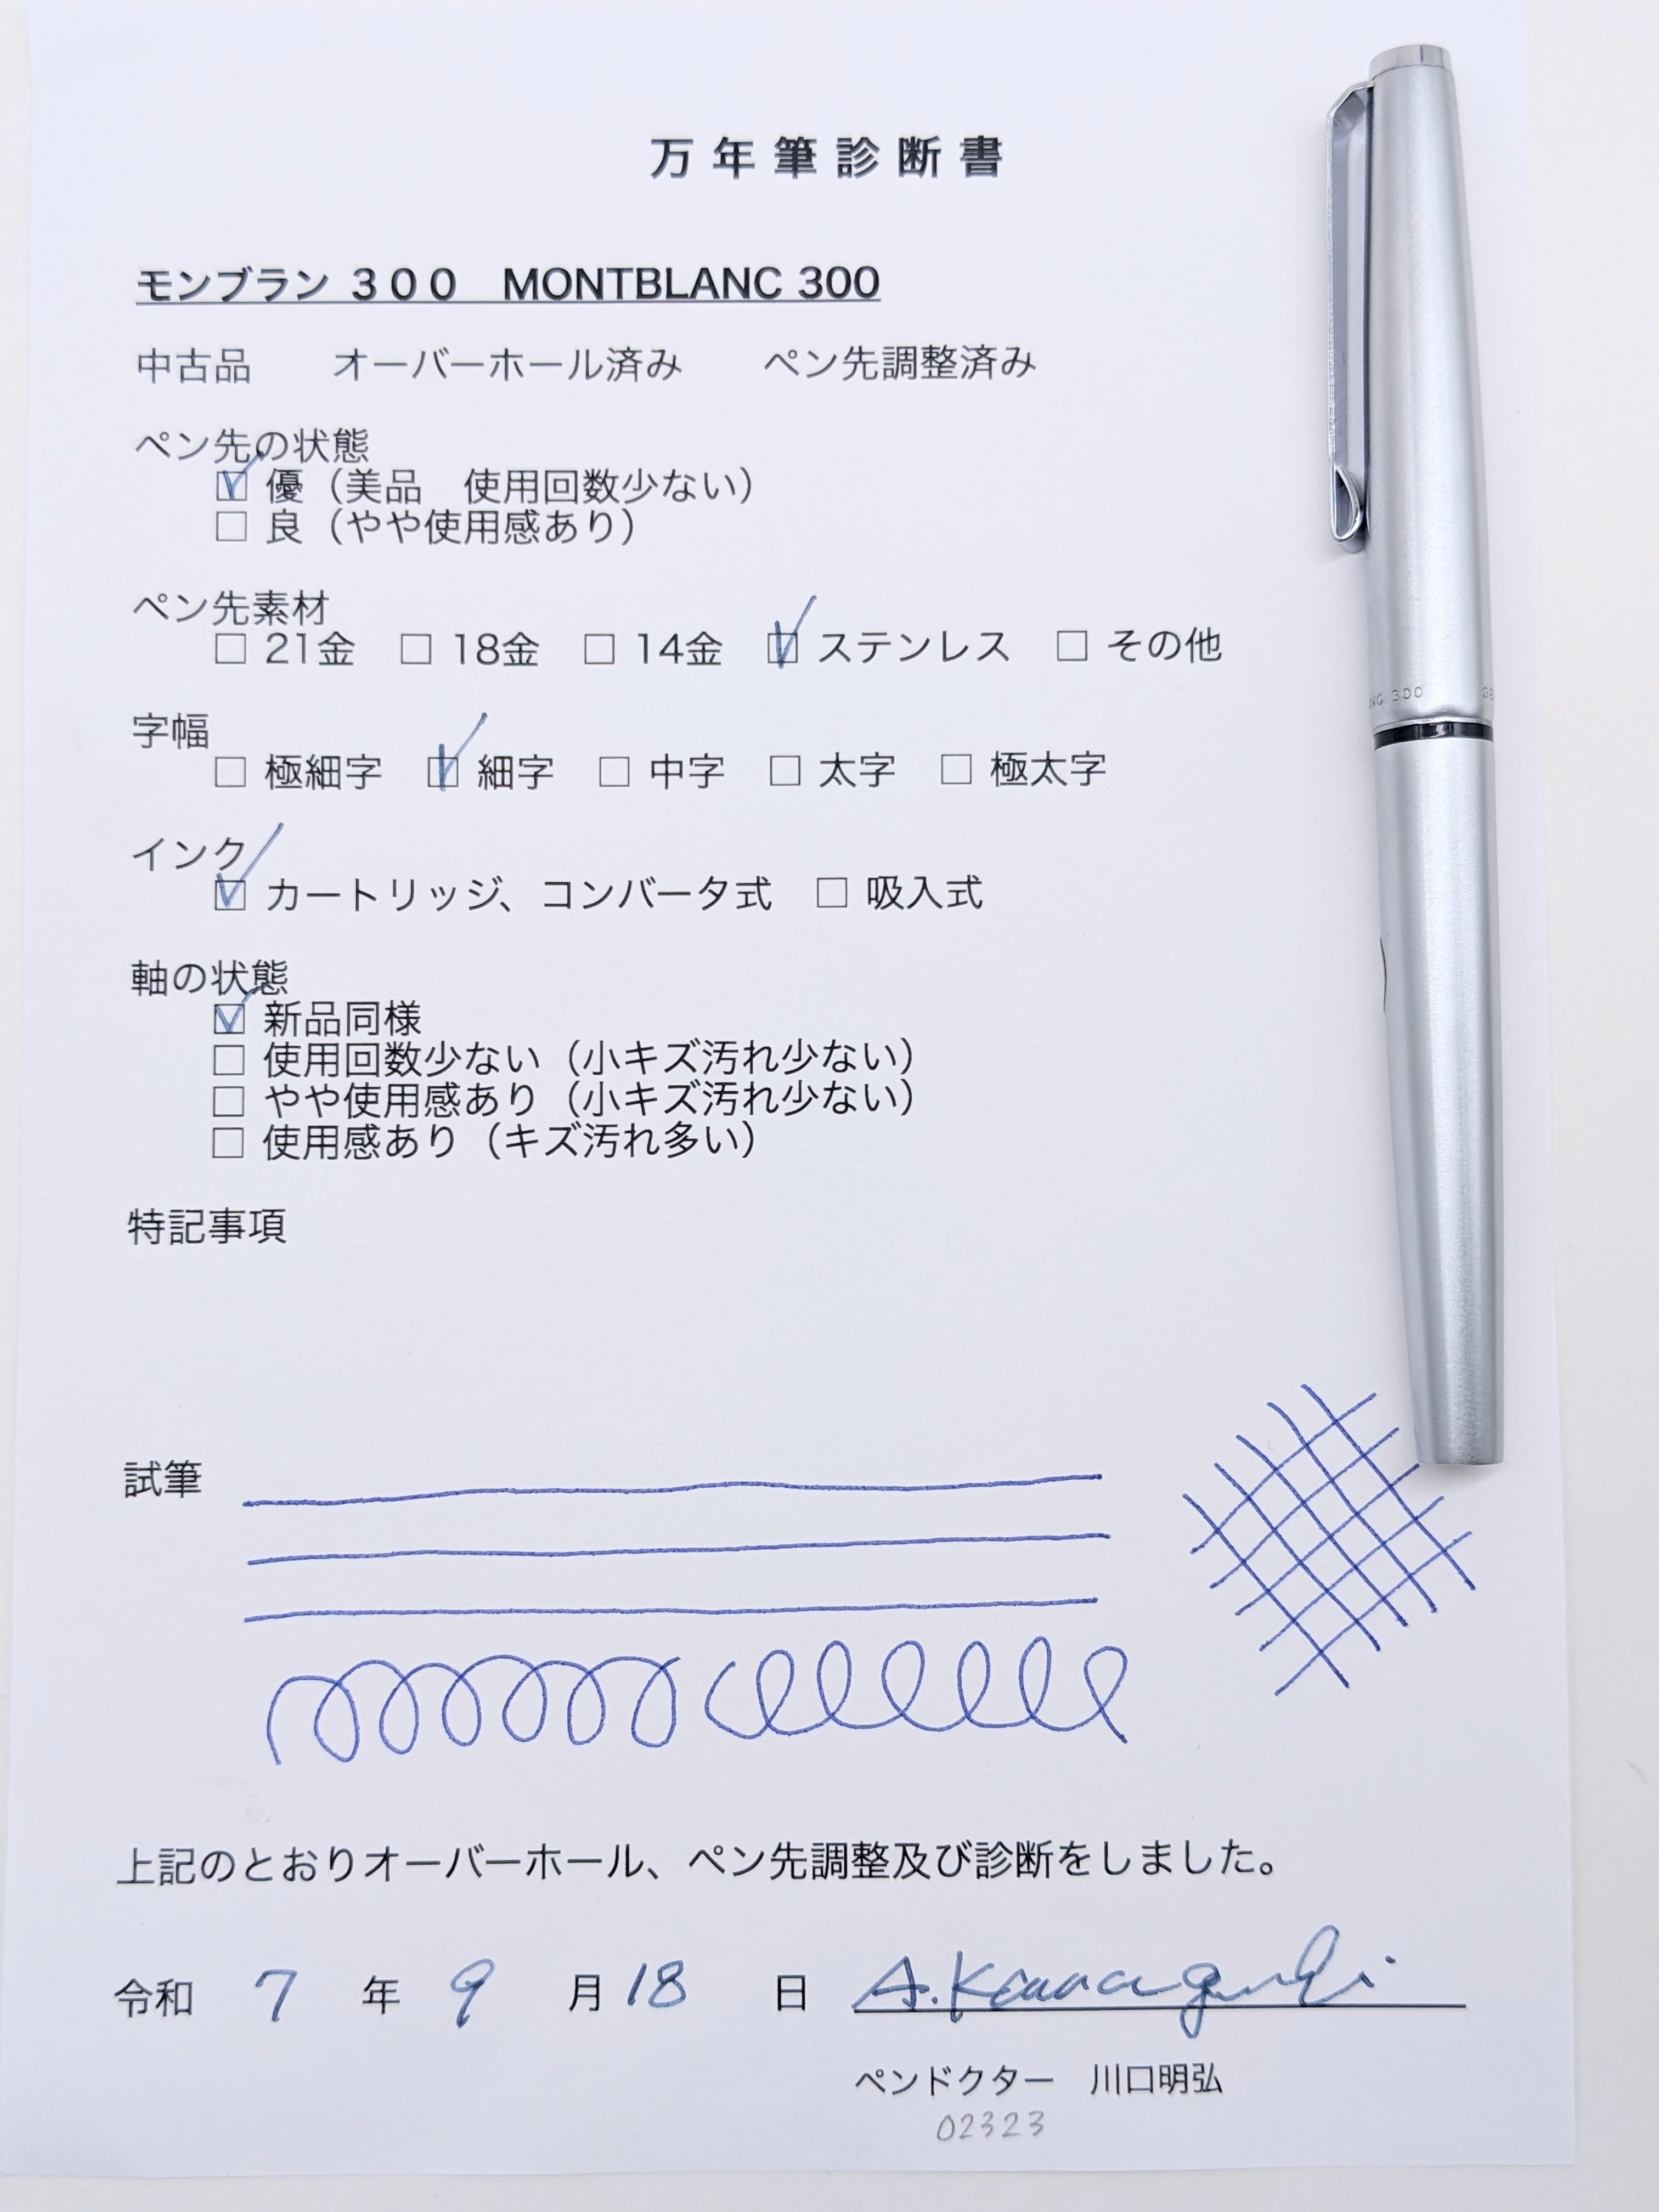 万年筆診断書
モンブラン 300 MONTBLANC 300
中古品 オーバーホール済み ペン先調整済み
ペン先の状態
☑ 優（美品 使用回数少ない）
□ 良（やや使用感あり）
ペン先素材
□ 21金 □ 18金 □ 14金 ☑ ステンレス □ その他
字幅
□ 極細字 ☑ 細字 □ 中字 □ 太字 □ 極太字
インク
☑ カートリッジ、コンバータ式 □ 吸入式
軸の状態
☑ 新品同様
□ 使用回数少ない（小キズ汚れ少ない）
□ やや使用感あり（小キズ汚れ少ない）
□ 使用感あり（キズ汚れ多い）
特記事項
試筆
上記のとおりオーバーホール、ペン先調整及び診断をしました。
令和 7 年 9 月 18 日 A.Kawaguchi
ペンドクター 川口明弘
02323
300